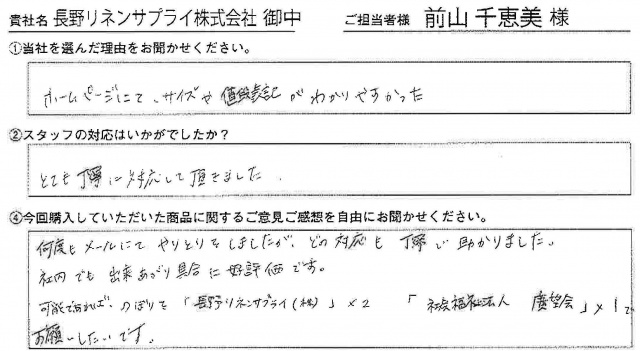 貴社名 長野リネンサプライ株式会社 御中 ご担当者様 前山 千恵美 様
①当社を選んだ理由をお聞かせください。
ホームページにて、サイズや値段表記がわかりやすかった
②スタッフの対応はいかがでしたか？
とても丁寧に対応して頂きました.
④今回購入していただいた商品に関するご意見ご感想を自由にお聞かせください。
何度もメールにてやりとりをしましたが、どの対応も丁寧で助かりました。
社内でも出来あがり具合に好評価です。
可能であれば、のぼりを「長野リネンサプライ(株)」×2 「社会福祉法人 廣望会」×1で
お願いしたいです。